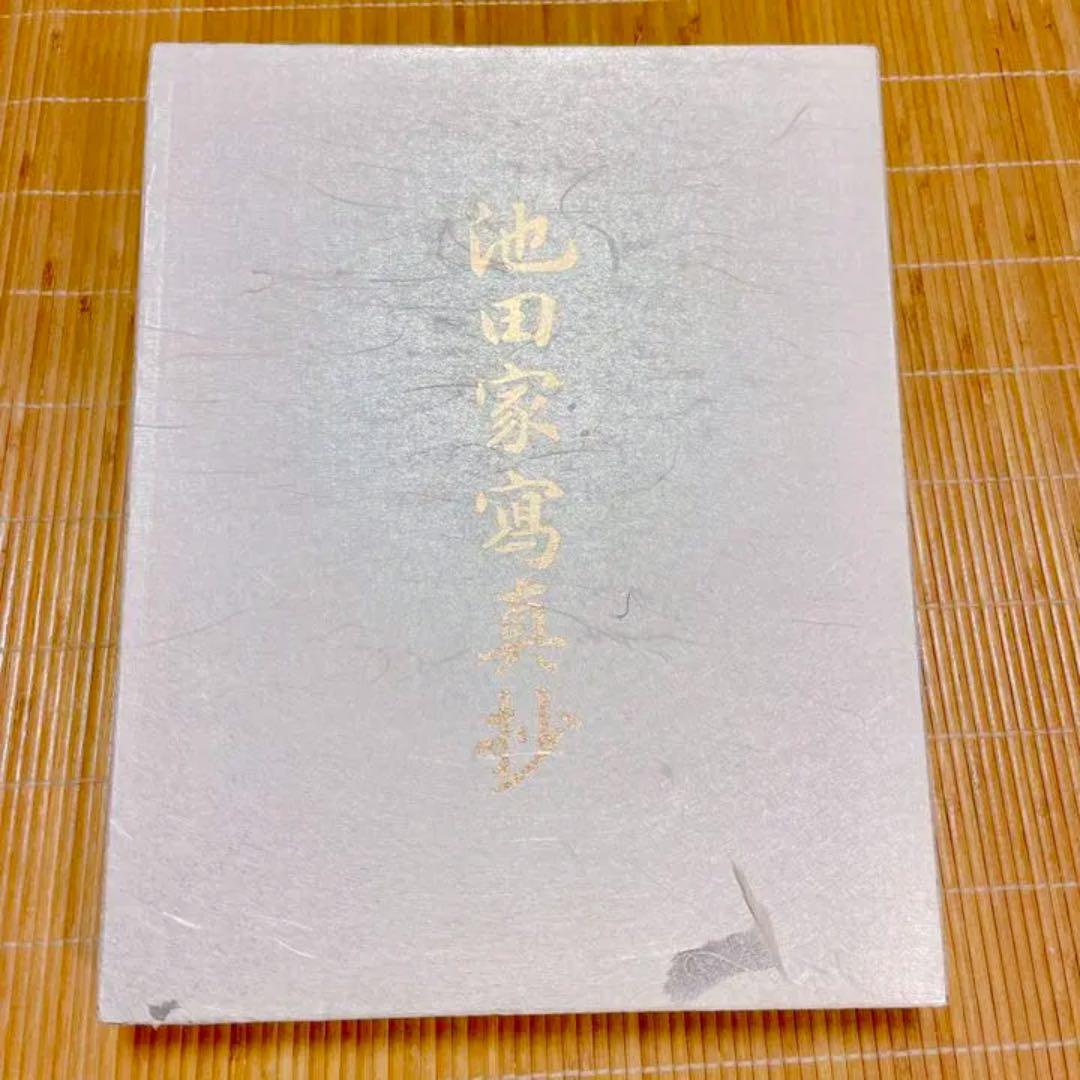 池田家寫真抄